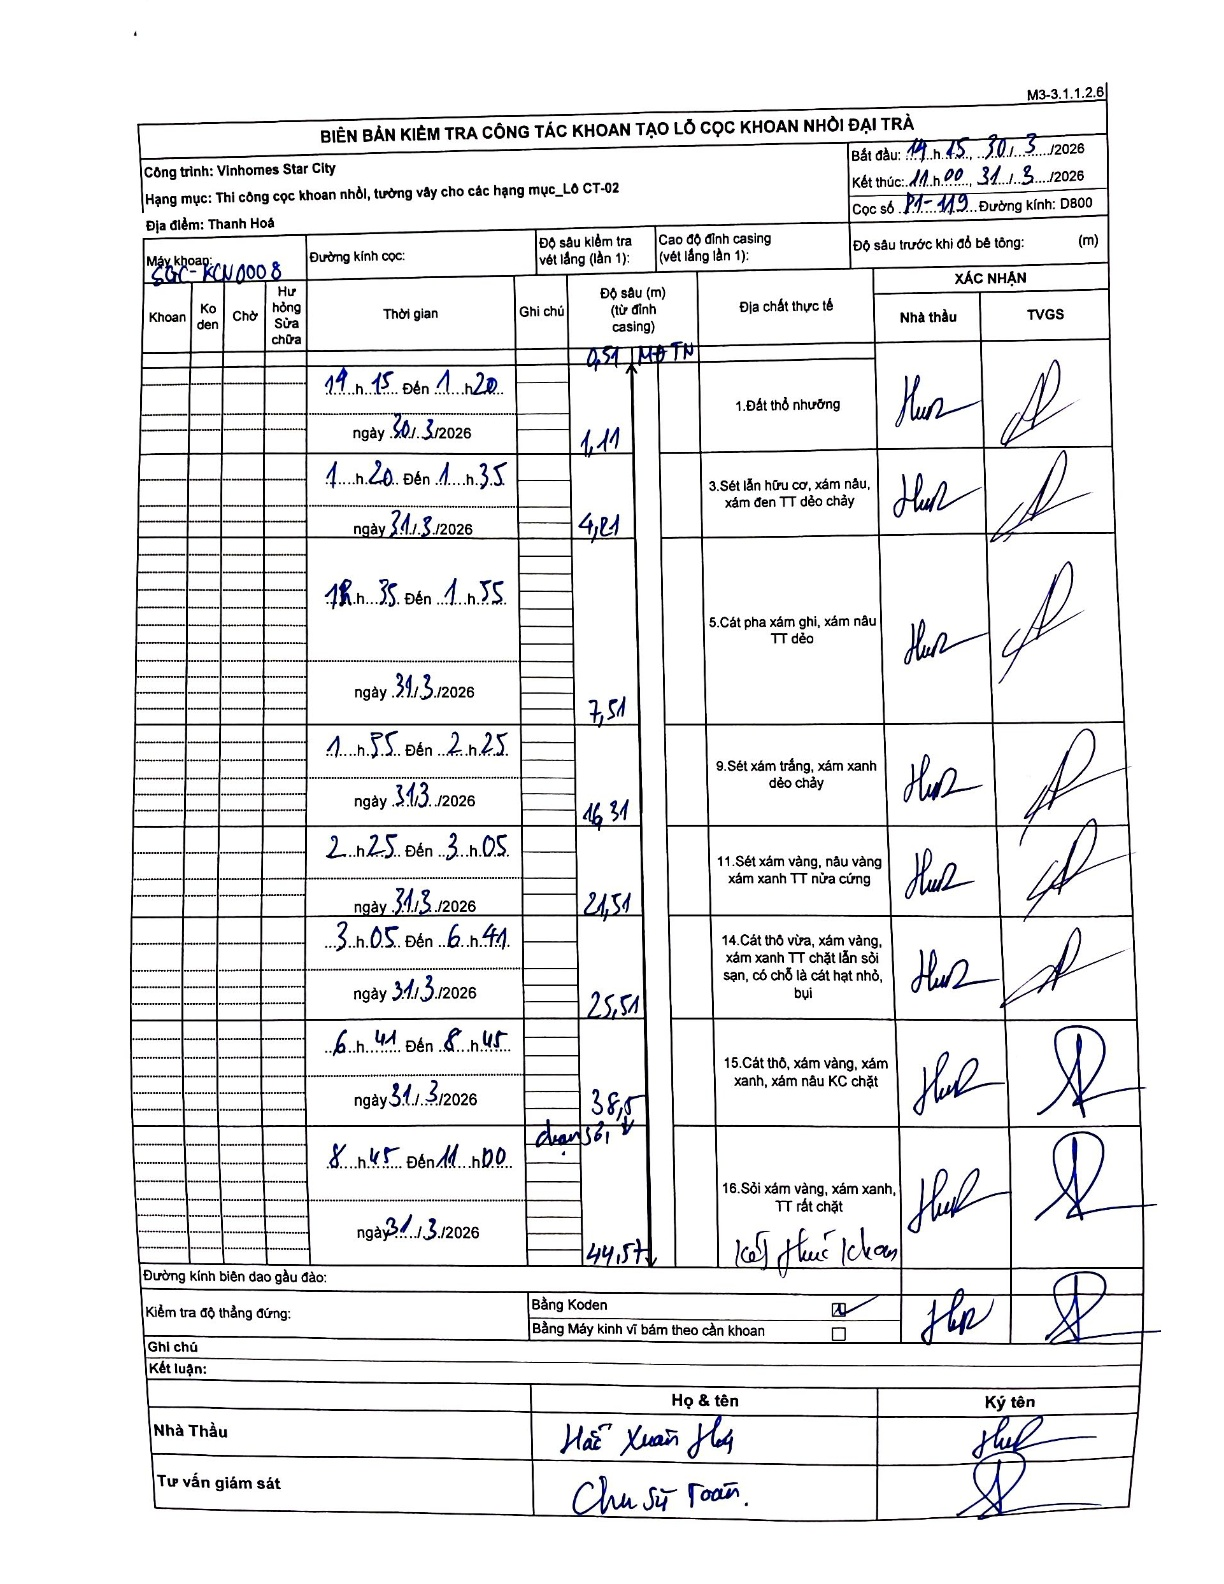 M3-3.1.1.2.6
BIÊN BẢN KIỂM TRA CÔNG TÁC KHOAN TẠO LỖ CỌC KHOAN NHỒI ĐẠI TRÀ
Công trình: Vinhomes Star City
Hạng mục: Thi công cọc khoan nhồi, tường vây cho các hạng mục_Lô CT-02
Địa điểm: Thanh Hoá
Bắt đầu: 19 h 15, 30/3/2026
Kết thúc: 11 h 00, 31/3/2026
Cọc số P1-119 Đường kính: D800
Máy khoan:
SGC-KCN0008
Đường kính cọc:
Độ sâu kiểm tra vét lắng (lần 1):
Cao độ đỉnh casing (vét lắng lần 1):
Độ sâu trước khi đổ bê tông: (m)
Khoan
Ko den
Chờ
Hư hỏng Sửa chữa
Thời gian
Ghi chú
Độ sâu (m) (từ đỉnh casing)
Địa chất thực tế
XÁC NHẬN
Nhà thầu
TVGS
0,51 MĐTN
19 h 15 Đến 1 h 20
ngày 30/3/2026
1,11
1.Đất thổ nhưỡng
1 h 20 Đến 1 h 35
ngày 31/3/2026
4,81
3.Sét lẫn hữu cơ, xám nâu,
xám đen TT dẻo chảy
h 35 Đến 1 h 55
ngày 31/3/2026
7,51
5.Cát pha xám ghi, xám nâu
TT dẻo
1 h 55 Đến 2 h 25
ngày 31/3/2026
16,31
9.Sét xám trắng, xám xanh
dẻo chảy
2 h 25 Đến 3 h 05
ngày 31/3/2026
21,51
11.Sét xám vàng, nâu vàng
xám xanh TT nửa cứng
3 h 05 Đến 6 h 41
ngày 31/3/2026
25,51
14.Cát thô vừa, xám vàng,
xám xanh TT chặt lẫn sỏi
sạn, có chỗ là cát hạt nhỏ,
bụi
6 h 41 Đến 8 h 45
ngày 31/3/2026
38,5
15.Cát thô, xám vàng, xám
xanh, xám nâu KC chặt
chạm sỏi
8 h 45 Đến 11 h 00
ngày 31/3/2026
44,57
16.Sỏi xám vàng, xám xanh,
TT rất chặt
Kết thúc khoan
Đường kính biên dao gầu đào:
Kiểm tra độ thẳng đứng:
Bằng Koden
Bằng Máy kinh vĩ bám theo cần khoan
Ghi chú
Kết luận:
Họ & tên
Ký tên
Nhà Thầu
Xuân
Tư vấn giám sát
Chu Sỹ Toàn.